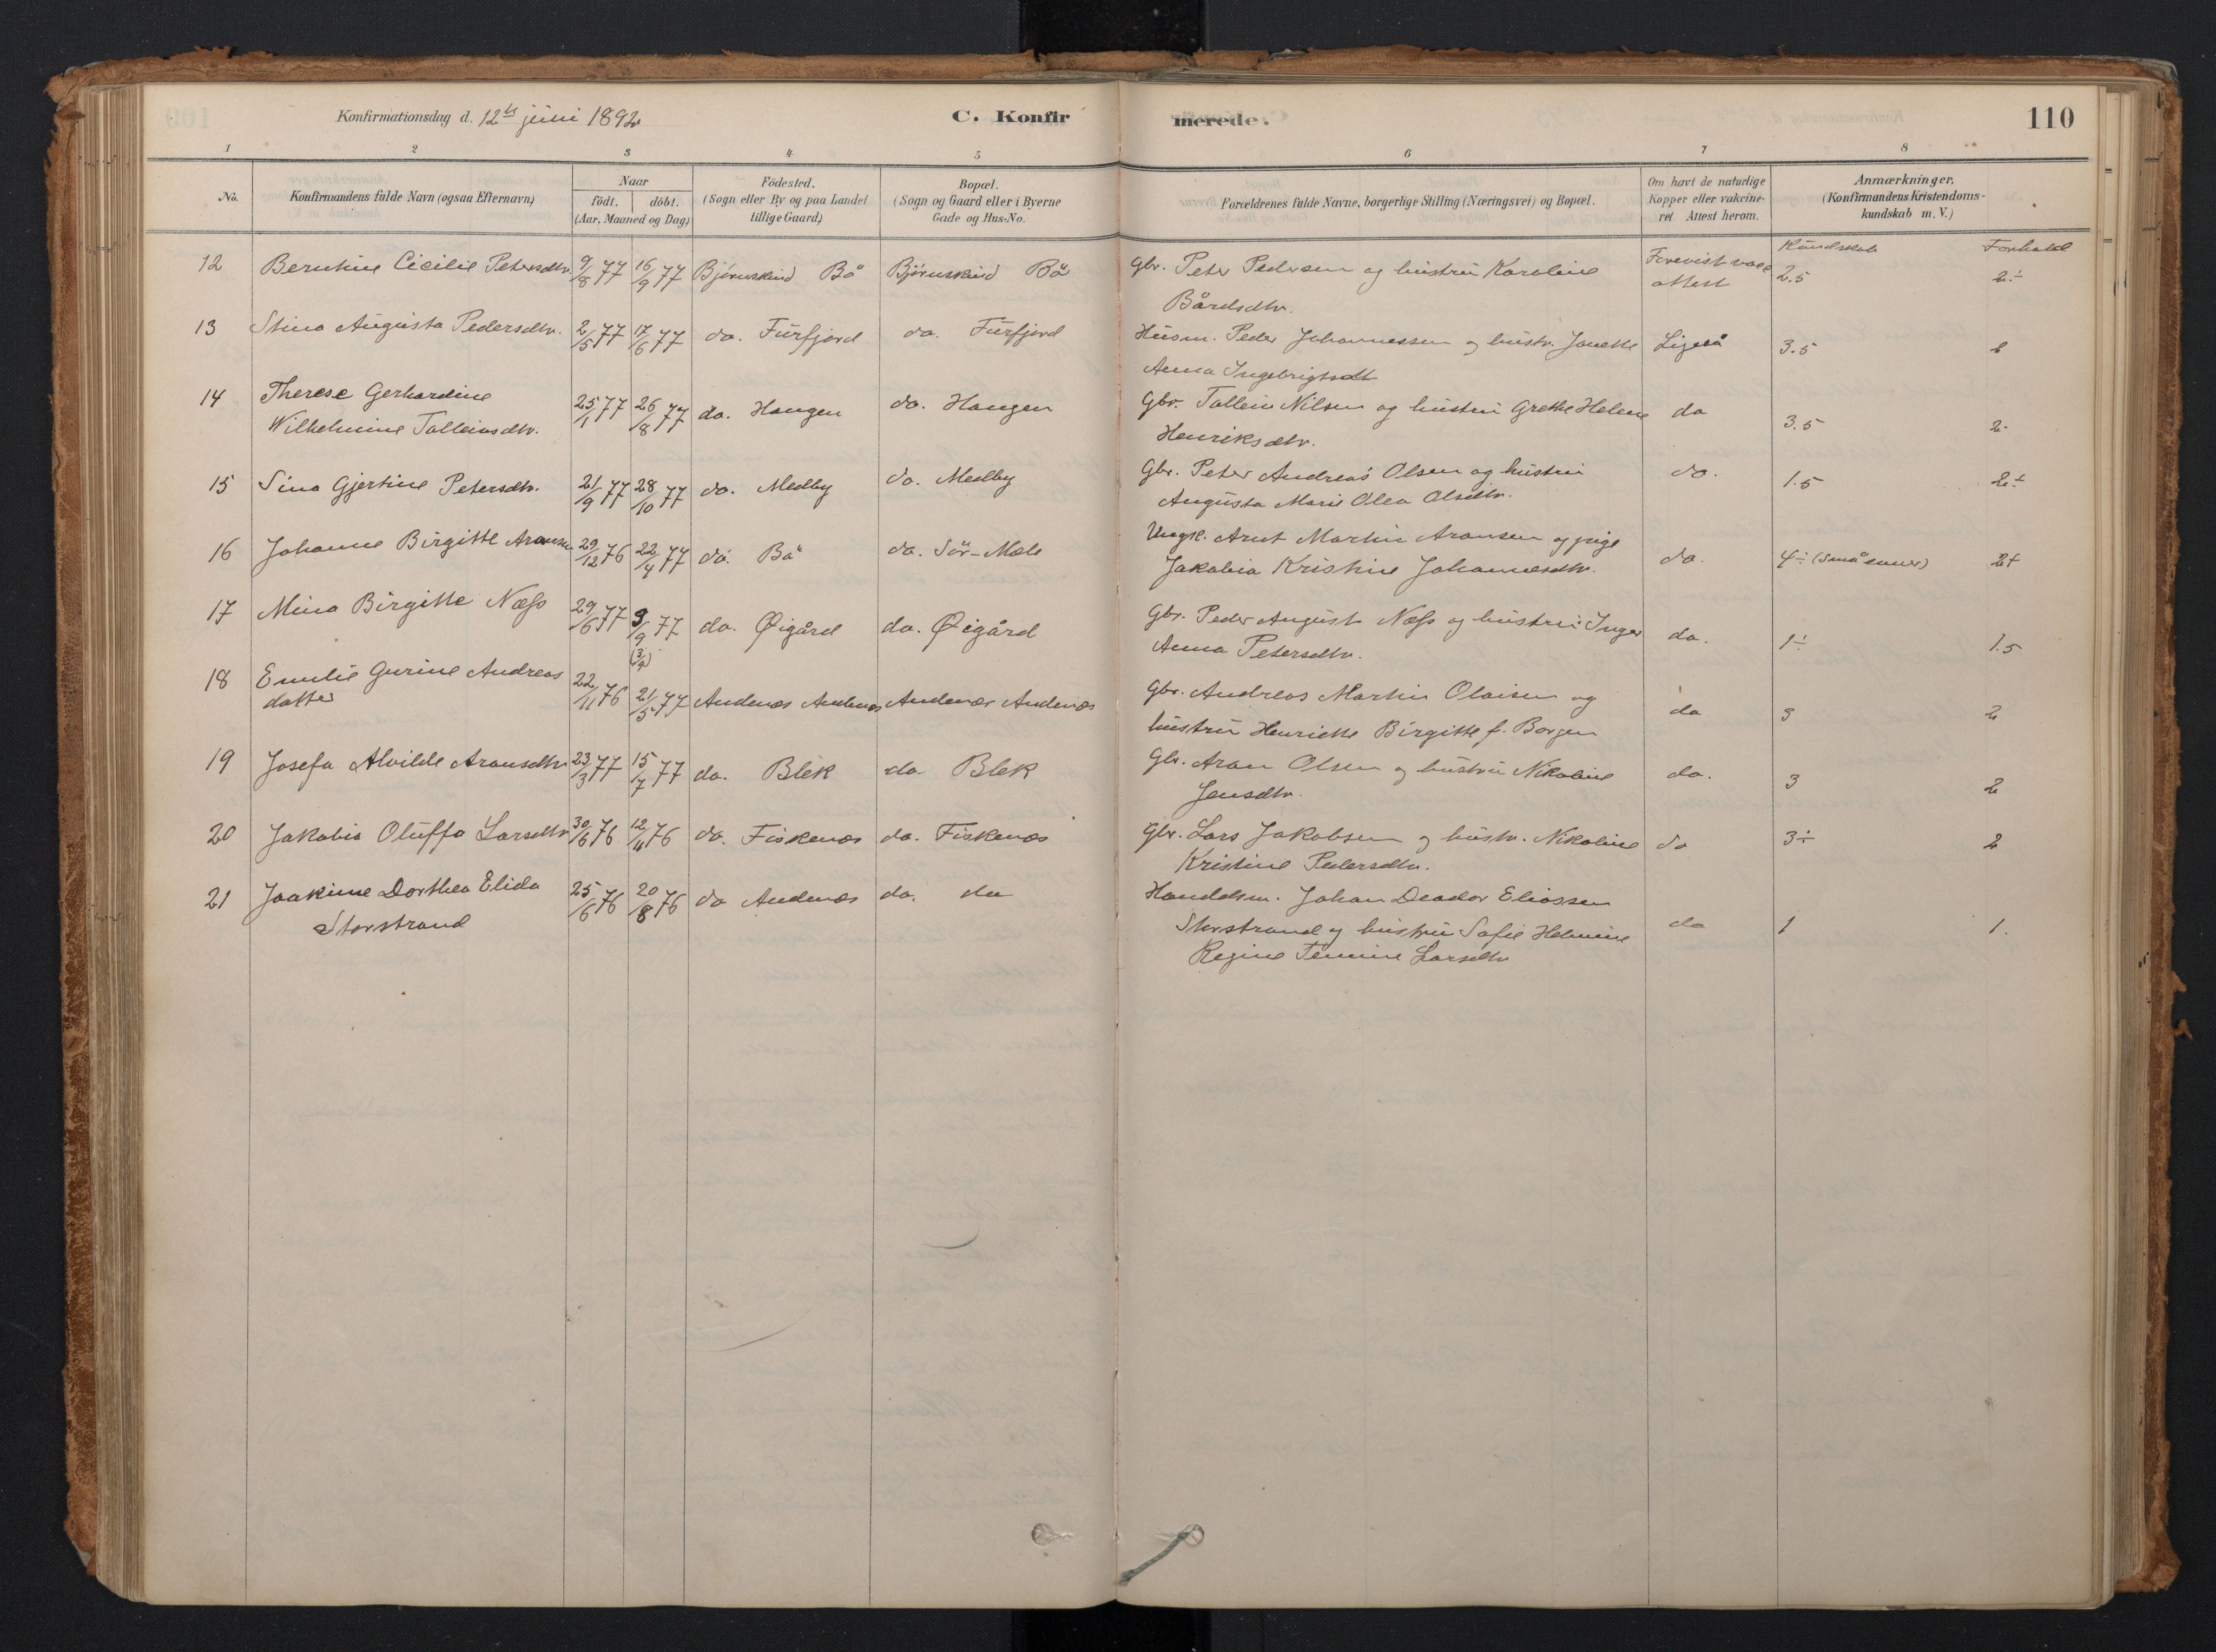 Konfirmationsdag d. 12te juni 1892
C. Konfirmerede.
110
1 2 3 4 5 6 7 8
No.
Konfirmandens fulde Navn (ogsaa Efternavn)
Naar
født. døbt.
(Aar, Maaned og Dag)
Födested.
(Sogn eller By og paa Landet
tillige Gaard)
Bopæl.
(Sogn og Gaard eller i Byerne
Gade og Hus-No.
Forældrenes fulde Navne, borgerlige Stilling (Næringsvei) og Bopæl.
Om havt de naturlige
Kopper eller vakcine-
ret Attest herom.
Anmærkninger,
(Konfirmandens Kristendoms-
kundskab m. V.)
Kundskab Forhold
12 Berntine Cicilie Petersdtr. 9/8 77 16/9 77 Bjørnskind Bö Bjørnskind Bö Gbr. Peter Pedersen og hustru Karoline Forevist vacc 2.5 2÷
Bårdsdtr. attest
13 Stina Augusta Pedersdtr. 2/5 77 17/6 77 do. Furfjord do. Furfjord Husm. Peder Johannessen og hustr. Janette Ligeså 3.5 2
Anna Ingebrigtsdt
14 Therese Gerhardine 25/1 77 26/8 77 do. Haugen do. Haugen Gbr. Tollein Nilsen og hustru Grethe Helene do 3.5 2.
Wilhelmine Tolleinsdtr. Henriksdtr.
15 Sina Gjertine Petersdtr. 21/9 77 28/10 77 do. Medby do. Medby Gbr. Peter Andreas Olsen og hustru do. 1.5 2÷
Augusta Marie Olea Olsdtr.
16 Johanne Birgitte Aronsen 29/12 76 22/4 77 do. Bö do. Sør-Mele Ungk. Arnt Martin Aronsen og pige
Jakobia Kristine Johannesdtr. do. 4÷ (Små evner) 2+
17 Mina Birgitte Næss 29/6 77 9/9 77 do. Øigård do. Øigård Gbr. Peder August Næss og hustru Inger do. 1÷ 1.5
(3/9) Anna Petersdtr.
18 Emilie Gurine Andreas 22/11 76 21/5 77 Andenæs Andenæs Andenæs Andenæs Gbr. Andreas Martin Olaisen og do 3 2
datter hustru Henriette Birgitte f. Borgen
19 Josefa Alvilde Aronsdtr 23/3 77 15/7 77 do. Blek do Blek Gbr. Aron Olsen og hustru Nikoline do. 3 2
Jensdtr.
20 Jakobia Oluffa Larsdtr 30/6 76 12/11 76 do. Fiskenæs do. Fiskenæs Gbr. Lars Jakobsen og hustr. Nikoline do 3÷ 2
Kristine Pedersdtr.
21 Joakime Dorthea Elida 25/6 76 20/8 76 do Andenæs do. do Handelsm. Johan Deodor Eliassen
Storstrand Storstrand og hustru Sofie Helmine do 1 1.
Regine Larsdtr